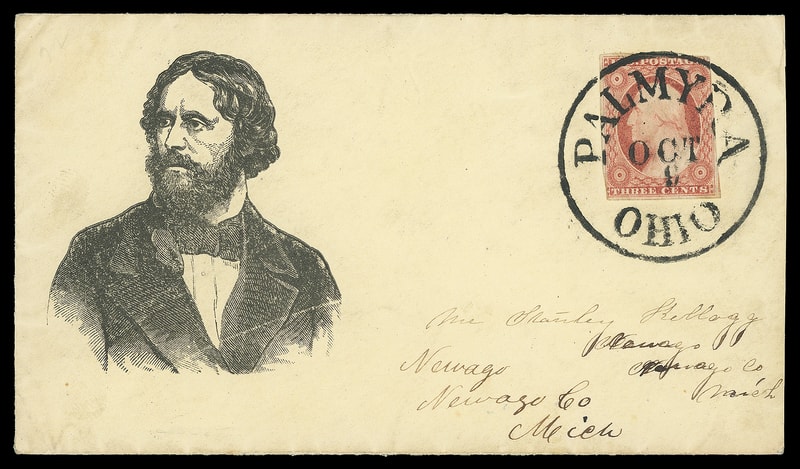 U.S. POSTAGE
PALMYRA
OCT
OHIO
THREE CENTS
Stanley Kellogg
Newago
Newago Co
Mich
Newago
Newago Co
Mich